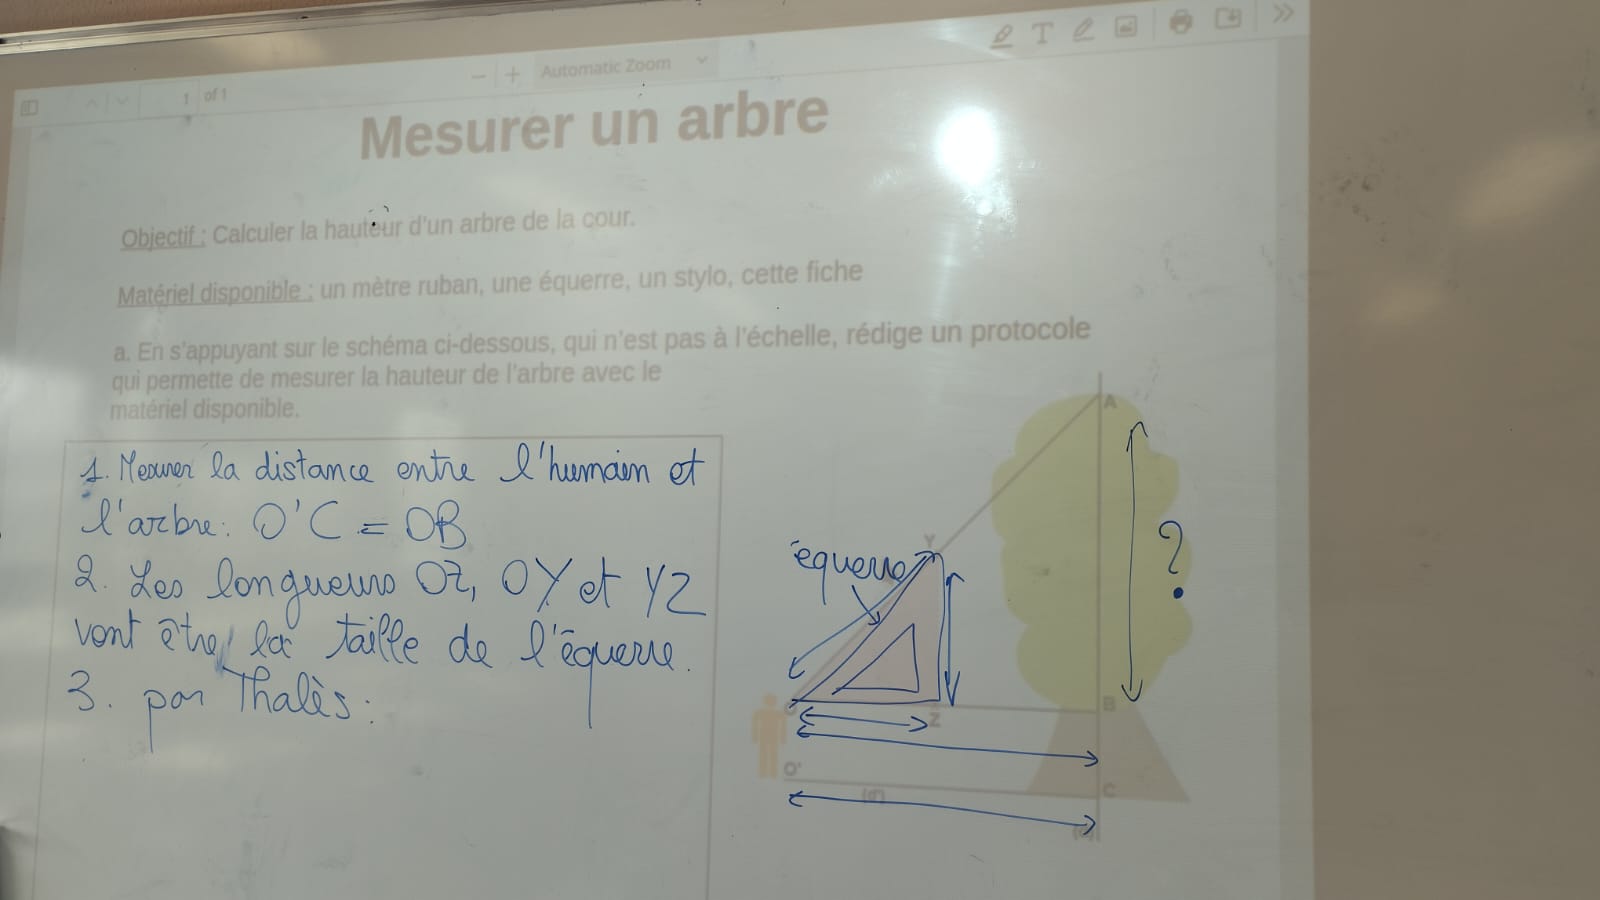 1 of 1
Automatic Zoom
Mesurer un arbre
Objectif : Calculer la hauteur d'un arbre de la cour.
Matériel disponible : un mètre ruban, une équerre, un stylo, cette fiche
a. En s'appuyant sur le schéma ci-dessous, qui n'est pas à l'échelle, rédige un protocole
qui permette de mesurer la hauteur de l'arbre avec le
matériel disponible.
1. Mesurer la distance entre l'humain et
l'arbre: O'C = OB
2. Les longueurs OZ, OY et YZ
vont être la taille de l'équerre.
3. par Thalès:
A
Y
équerre
?
O
Z
B
O'
C
(d')